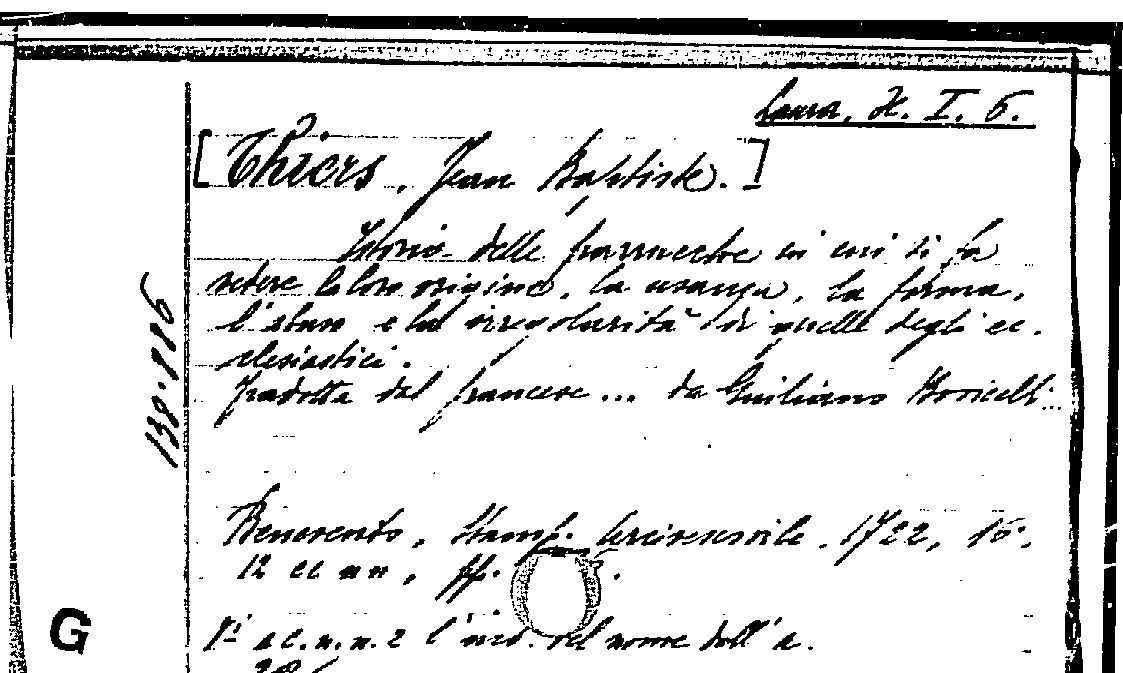 Laura. X. I. 6.
[Thiers, Jean Baptiste.]
Istoria delle parrucche in cui si fa
vedere la loro origine, la usanza, la forma,
l'abuso e la irregolarità di quelle degli ec-
clesiastici.
Tradotta dal francese ... da Giuliano Bovicelli
138.886
Benevento, Stamp. Arcivescovile, 1722, 16°,
12 cc nn, pp.
G
Vi è a c. n. n. 2 l'ind. del nome dell'a.